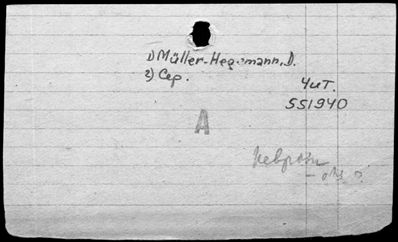 1) Müller-Hegemann, D.
2) Сер.
Чит.
551940
А
Неврозы